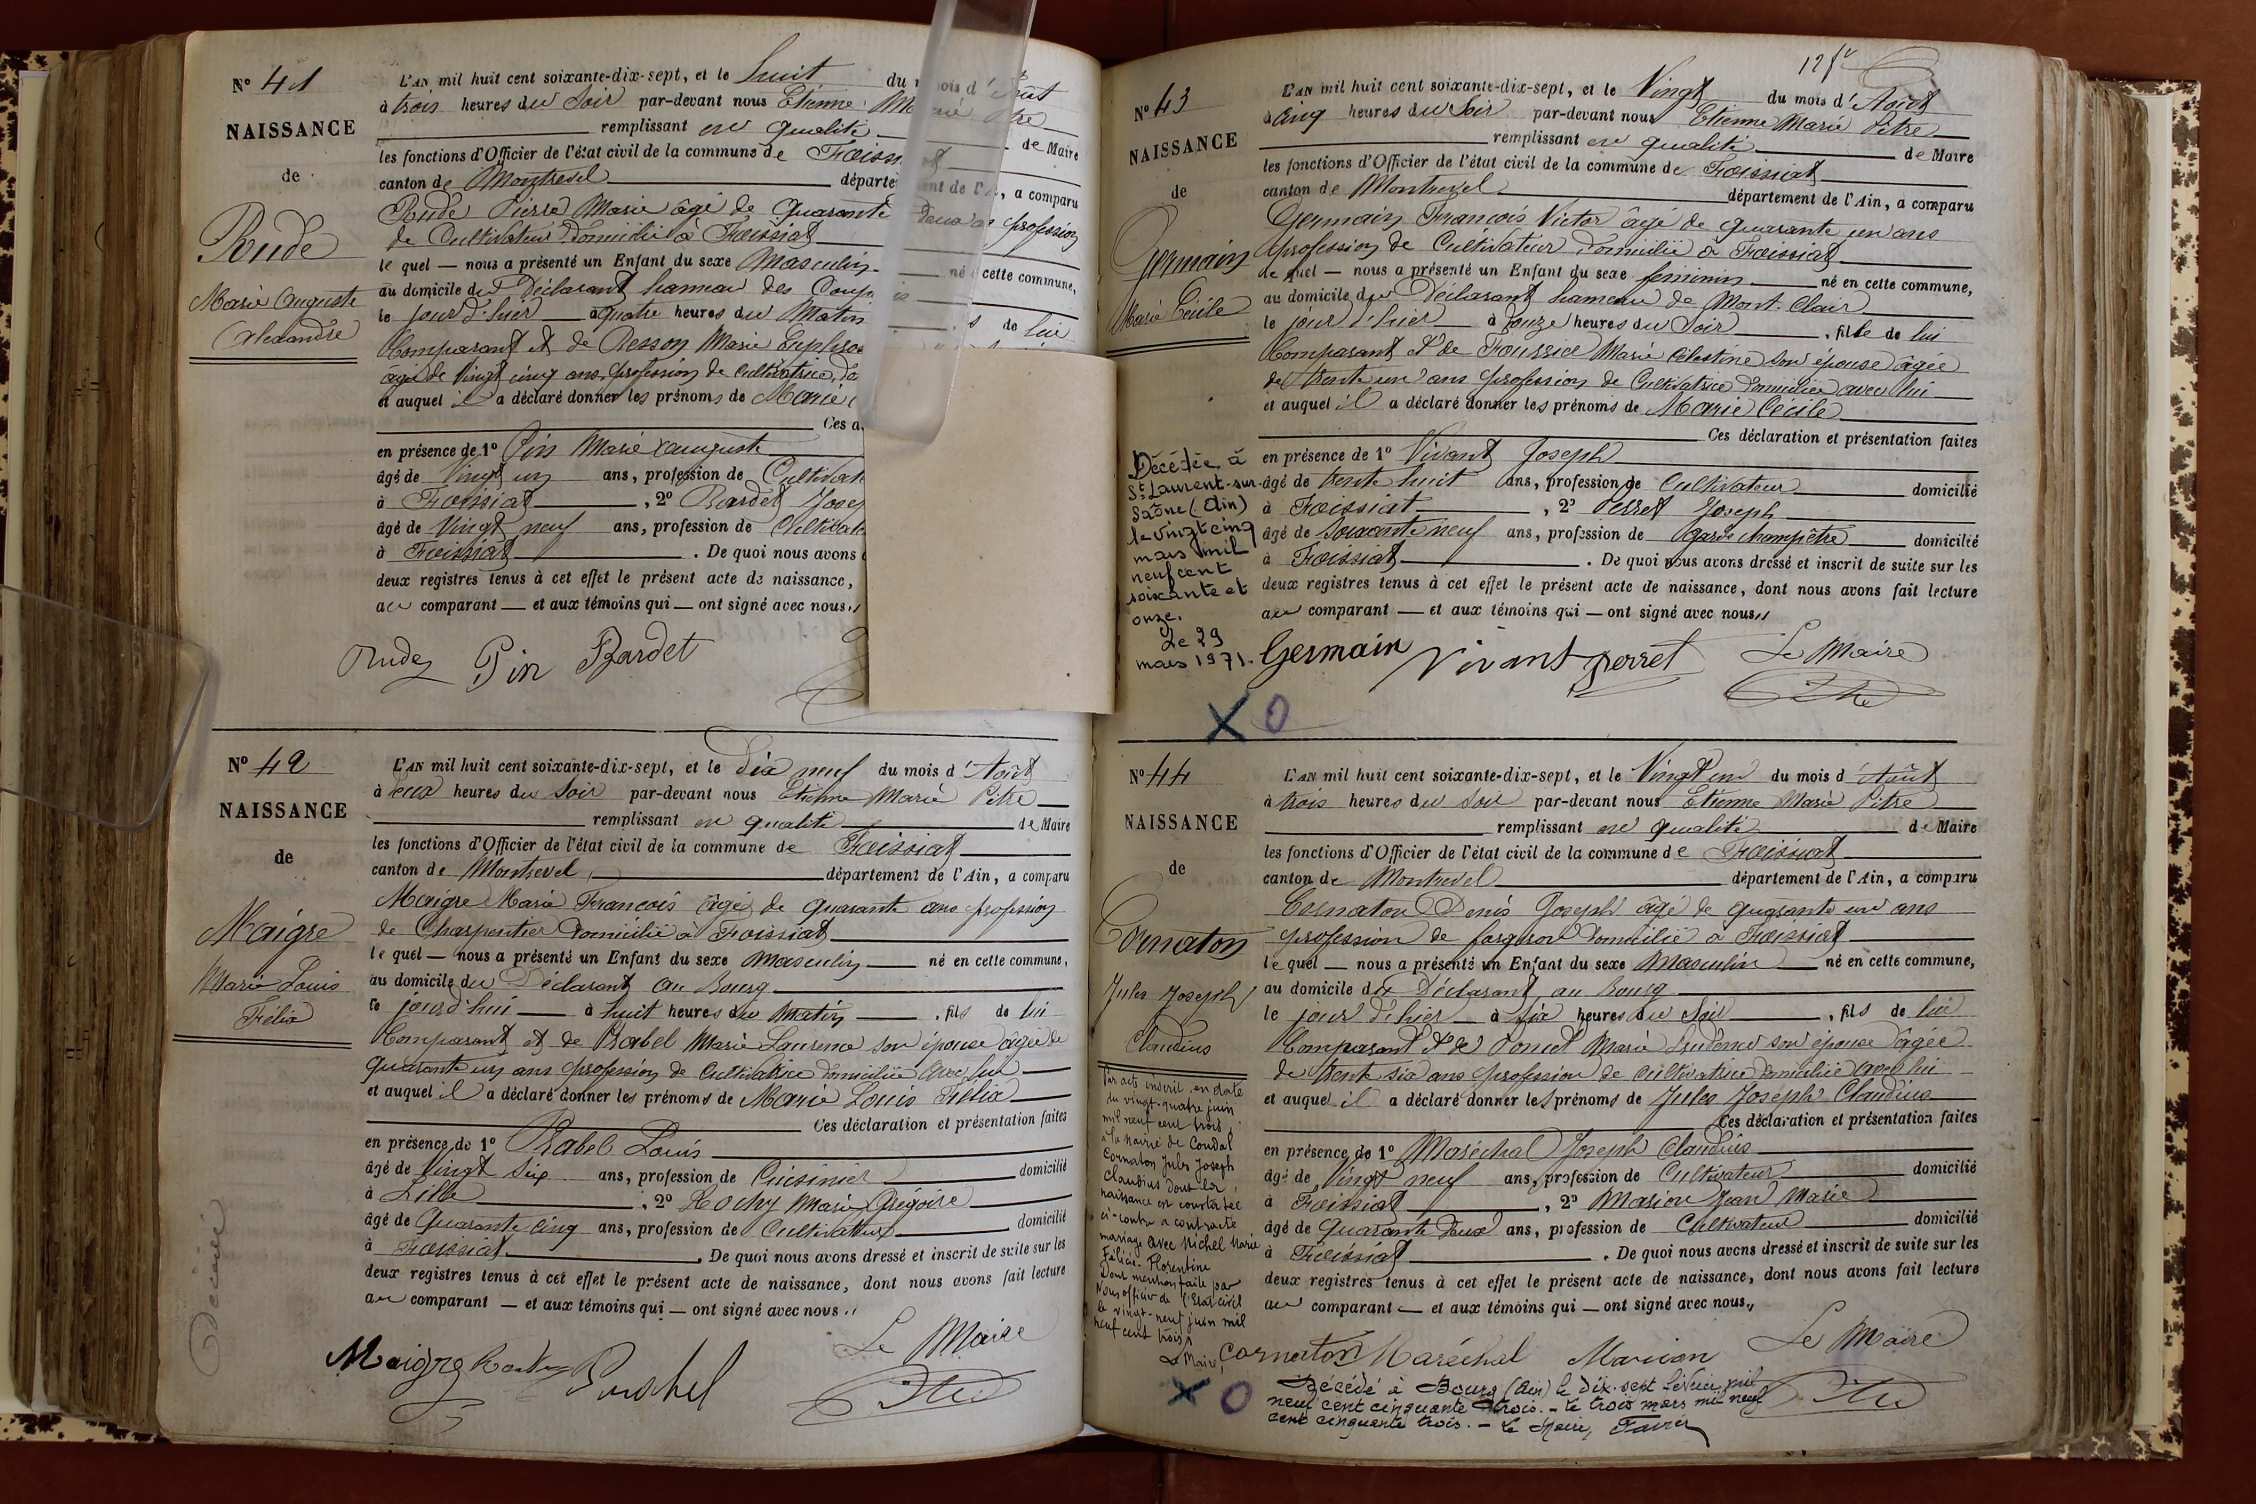 Nº 41
NAISSANCE
de
Rude
Marie Auguste
Alexandre
L'AN mil huit cent soixante-dix-sept, et le huit du mois d'Août
à trois heures du Soir par-devant nous Etienne Marie Pitre
remplissant en qualité de Maire
les fonctions d'Officier de l'état civil de la commune de Foissiat
canton de Montrevel département de l'Ain, a comparu
Rude Pierre Marie âgé de quarante deux ans profession
de Cultivateur domicilié à Foissiat
le quel — nous a présenté un Enfant du sexe Masculin né en cette commune,
au domicile du Déclarant hameau des
le jour d'hier à quatre heures du Matin fils de lui
Comparant et de Besson Marie
âgée de vingt cinq ans, profession de cultivatrice,
et auquel il a déclaré donner les prénoms de Marie
Ces
en présence de 1º Pin Marie Auguste
âgé de Vingt un ans, profession de
à Foissiat , 2º Bardet
âgé de Vingt neuf ans, profession de
à Foissiat . De quoi nous avons
deux registres tenus à cet effet le présent acte de naissance,
au comparant — et aux témoins qui — ont signé avec nous.
Rude Pin Bardet
Nº 42
NAISSANCE
de
Maigre
Marie Louis
Félix
Décédé
L'AN mil huit cent soixante-dix-sept, et le Dix neuf du mois d'Août
à deux heures du Soir par-devant nous Etienne Marie Pitre
remplissant en qualité de Maire
les fonctions d'Officier de l'état civil de la commune de Foissiat
canton de Montrevel département de l'Ain, a comparu
Maigre Marie François âgé de quarante ans profession
de Charpentier domicilié à Foissiat
le quel — nous a présenté un Enfant du sexe Masculin né en cette commune,
au domicile du Déclarant au Bourg
le jour d'hui à huit heures du Matin , fils de lui
Comparant et de Rabel Marie Laurence son épouse âgée de
quarante un ans profession de cultivatrice domiciliée avec lui
et auquel il a déclaré donner les prénoms de Marie Louis Félix
Ces déclaration et présentation faites
en présence de 1º Louis
âgé de Vingt six ans, profession de Cuisinier domicilié
à Lille , 2º Marie Grégoire
âgé de Quarante cinq ans, profession de Cultivateur domicilié
à Foissiat . De quoi nous avons dressé et inscrit de suite sur les
deux registres tenus à cet effet le présent acte de naissance, dont nous avons fait lecture
au comparant — et aux témoins qui — ont signé avec nous.
Le Maire
Maigre
Nº 43
NAISSANCE
de
Germain
Marie Cécile
Décédée à
St Laurent-sur-
Saône (Ain)
le vingt cinq
mars mil
neuf cent
soixante et
onze.
Le 29
mars 1971.
L'AN mil huit cent soixante-dix-sept, et le Vingt du mois d'Août
à cinq heures du Soir par-devant nous Etienne Marie Pitre
remplissant en qualité de Maire
les fonctions d'Officier de l'état civil de la commune de Foissiat
canton de Montrevel département de l'Ain, a comparu
Germain François Victor âgé de quarante un ans
profession de Cultivateur domicilié à Foissiat
le quel — nous a présenté un Enfant du sexe féminin né en cette commune,
au domicile du Déclarant hameau de Mont-Clair
le jour d'hier à onze heures du Soir , fille de lui
Comparant & de Marie Célestine son épouse âgée
de trente un ans profession de Cultivatrice domiciliée avec lui
et auquel il a déclaré donner les prénoms de Marie Cécile
Ces déclaration et présentation faites
en présence de 1º Vivant Joseph
âgé de trente huit ans, profession de Cultivateur domicilié
à Foissiat , 2º Perret Joseph
âgé de soixante neuf ans, profession de garde champêtre domicilié
à Foissiat . De quoi nous avons dressé et inscrit de suite sur les
deux registres tenus à cet effet le présent acte de naissance, dont nous avons fait lecture
au comparant — et aux témoins qui — ont signé avec nous.
Germain Vivant perret Le Maire
X O
Nº 44
NAISSANCE
de
Cornaton
Jules Joseph
Claudius
Par acte inscrit en date
du vingt-quatre juin
mil neuf cent trois,
à la Mairie de Condal
Cornaton Jules Joseph
Claudius dont la
naissance est constatée
ci-contre a contracté
mariage avec Michel Marie
Félicie-Florentine
Dont mention faite par
Nous officier de l'Etat civil
le vingt-neuf juin mil
neuf cent trois.
Le Maire,
L'AN mil huit cent soixante-dix-sept, et le Vingt un du mois d'Août
à trois heures du Soir par-devant nous Etienne Marie Pitre
remplissant en qualité de Maire
les fonctions d'Officier de l'état civil de la commune de Foissiat
canton de Montrevel département de l'Ain, a comparu
Cornaton Denis Joseph âgé de quarante un ans
profession de forgeron domicilié à Foissiat
le quel — nous a présenté un Enfant du sexe Masculin né en cette commune,
au domicile du Déclarant au Bourg
le jour d'hier à six heures du Soir , fils de lui
Comparant & de Poncet Marie son épouse âgée
de trente six ans profession de cultivatrice domiciliée avec lui
et auquel il a déclaré donner les prénoms de Jules Joseph Claudius
Ces déclaration et présentation faites
en présence de 1º Maréchal Joseph Claudius
âgé de Vingt neuf ans, profession de Cultivateur domicilié
à Foissiat , 2º Marion Jean Marie
âgé de quarante deux ans, profession de Cultivateur domicilié
à Foissiat . De quoi nous avons dressé et inscrit de suite sur les
deux registres tenus à cet effet le présent acte de naissance, dont nous avons fait lecture
au comparant — et aux témoins qui — ont signé avec nous.
Cornaton Maréchal Marion Le Maire
X O
Décédé à Bourg (Ain) le dix-sept février mil
neuf cent cinquante trois. - le trois mars mil neuf
cent cinquante trois. - Le Maire,